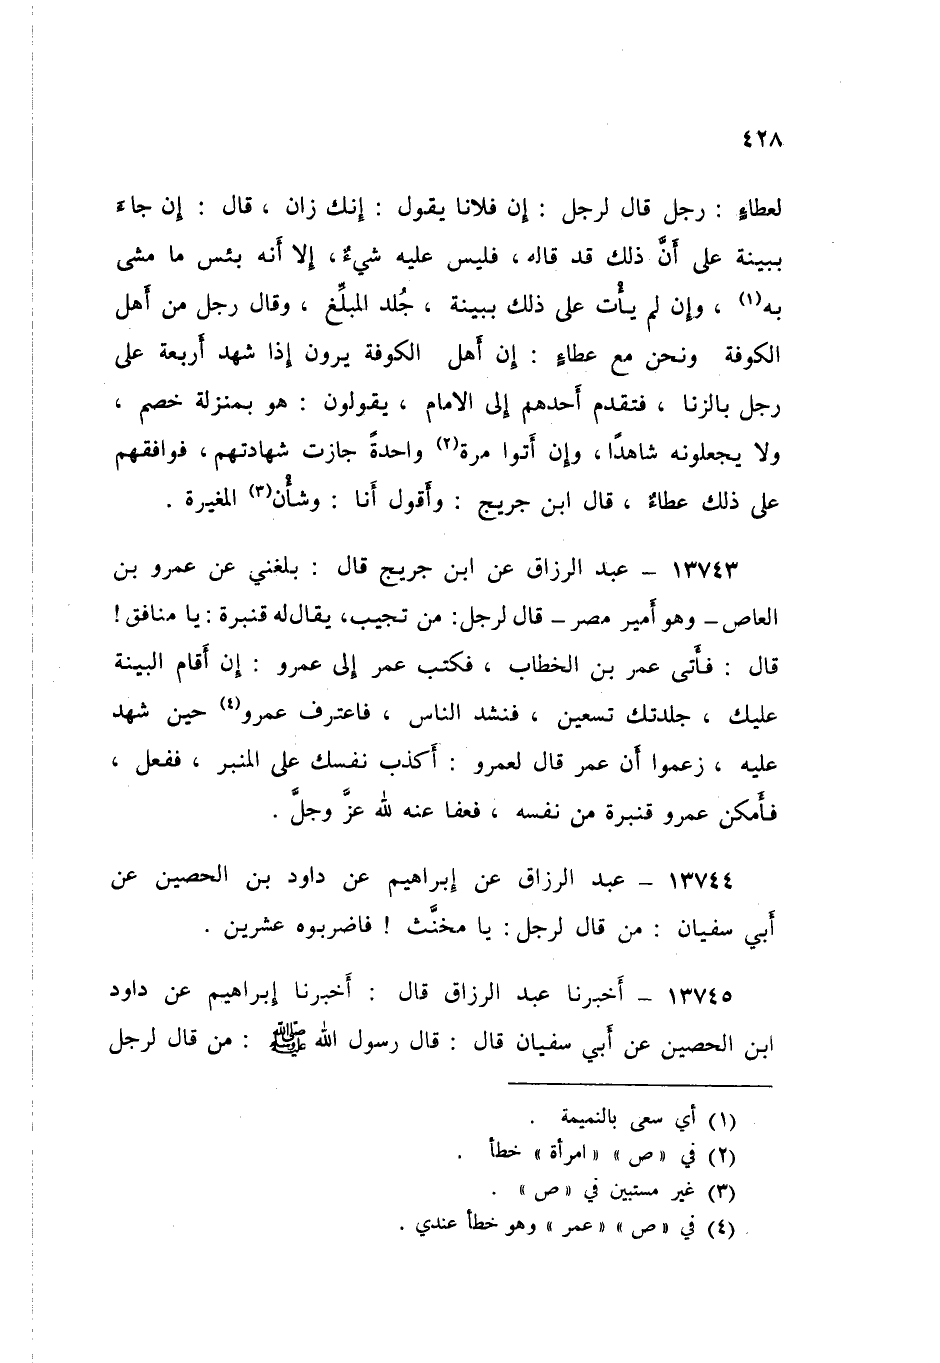 ٤٢٨
لعطاءٍ : رجل قال لرجل : إن فلانا يقول : إنك زان ، قال : إن جاء
ببينة على أنَّ ذلك قد قاله ، فليس عليه شيءٌ ، إلا أنه بئس ما مشى
به(١) ، وإن لم يأْت على ذلك ببينة ، جُلد المبلِّغ ، وقال رجل من أهل
الكوفة ونحن مع عطاءٍ : إن أهل الكوفة يرون إذا شهد أربعة على
رجل بالزنا ، فتقدم أحدهم إلى الامام ، يقولون : هو بمنزلة خصم ،
ولا يجعلونه شاهدًا ، وإن أتوا مرة(٢) واحدةً جازت شهادتهم ، فوافقهم
على ذلك عطاءٌ ، قال ابن جريج : وأقول أنا : وشأْن(٣) المغيرة .
١٣٧٤٣ – عبد الرزاق عن ابن جريج قال : بلغني عن عمرو بن
العاص – وهو أمير مصر – قال لرجل : من تجيب ، يقال له قنبرة : يا منافق !
قال : فأتى عمر بن الخطاب ، فكتب عمر إلى عمرو : إن أقام البينة
عليك ، جلدتك تسعين ، فنشد الناس ، فاعترف عمرو(٤) حين شهد
عليه ، زعموا أن عمر قال لعمرو : أكذب نفسك على المنبر ، ففعل ،
فأمكن عمرو قنبرة من نفسه ، فعفا عنه لله عزَّ وجلَّ .
١٣٧٤٤ – عبد الرزاق عن إبراهيم عن داود بن الحصين عن
أبي سفيان : من قال لرجل : يا مخنَّث ! فاضربوه عشرين .
١٣٧٤٥ – أخبرنا عبد الرزاق قال : أخبرنا إبراهيم عن داود
ابن الحصين عن أبي سفيان قال : قال رسول الله ﷺ : من قال لرجل
(١) أي سعى بالنميمة .
(٢) في «ص» «امرأة» خطأ .
(٣) غير مستبين في «ص» .
(٤) في «ص» «عمر» وهو خطأ عندي .